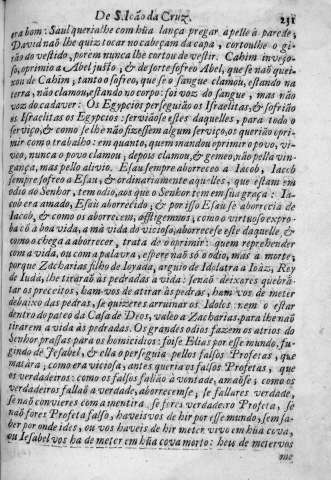 De S. Ioão da Cruz. 231
era bom: Saul queria lhe com hũa lança pregar apelle á parede;
David naõ lhe quiz tocar no cabeçam da capa, cortoulhe o gi-
rão do vestido, porem nunca lhe cortou de vestir. Cahim invejo-
so, oprimio a Abel justo, & de sorte sofreo Abel, que se naõ quei-
xou de Cahim, tanto o sofreo, que se o sangue clamou, estando na
terra, não clamou, estando no corpo: foi voz do sangue, mas não
voz do cadaver: Os Egypcios perseguião os Israelitas, & sofrião
os Israelitas os Egypcios: servião se estes daquelles, para todo o
serviço, & como se lhe não fizessem algum serviço, os querião opri-
mir com o trabalho: em quanto, quem mandou oprimir o povo, vi-
veo, nunca o povo clamou, depois clamou, & gemeo, não pella vin-
gança, mas pello alivio. Esau sempre aborreceo a Iacob, Iacob
sempre sofreo a Esau, & ordinariamente aquelles, que estam em
odio ao Senhor, tem odio, aos que o Senhor tem em sua graça: Ia-
cob era amado, Esaù aborrecido, & por isso Esaù se aborrecia de
Iacob, & como os aborrecem, affligemnos; como o virtuoso expro-
ba cõ a boa vida, a má vida do vicioso, aborrece se este daquelle, &
como o chega a aborrecer, trata de o oprimir: quem reprehender
com a vida, ou com a palavra, espere não só o odio, mas a morte;
porque Zacharias filho de Ioyada, arguio de Idolatra a Ioàz, Rey
de Iudà, lhe tiraraõ às pedradas a vida: senaõ deixares quebrã-
tar os preceitos, ham-vos de atirar às pedras, ham vos de meter
debaixo das pedras, se quizeres arruinar os Idolos: nem o estar
dentro do pateo da Casa de Deos, valeo a Zacharias, para lhe não
tirarem a vida às pedradas. Os grandes odios fazem os atrios do
Senhor prassas para os homicidios: foise Elias por esse mundo, fu-
gindo de Jesabel, & ella o perseguia pellos falsos Profetas, que
matàra; como era viciosa, antes queria os falsos Profetas, que
os verdadeiros: como os falsos fallão à vontade, amaõse; como os
verdadeiros fallaõ a verdade, aborrecemse, se fallares verdade,
se naõ convieres com a mentira, se fores verdadeiro Profeta, se
naõ fores Profeta falso, haveis vos de hir por esse mundo, sem sa-
ber por onde ides, ou vos haveis de hir meter vivo em hũa cova,
ou Iesabel vos ha de meter em hũa cova morto: heis de metervos
me